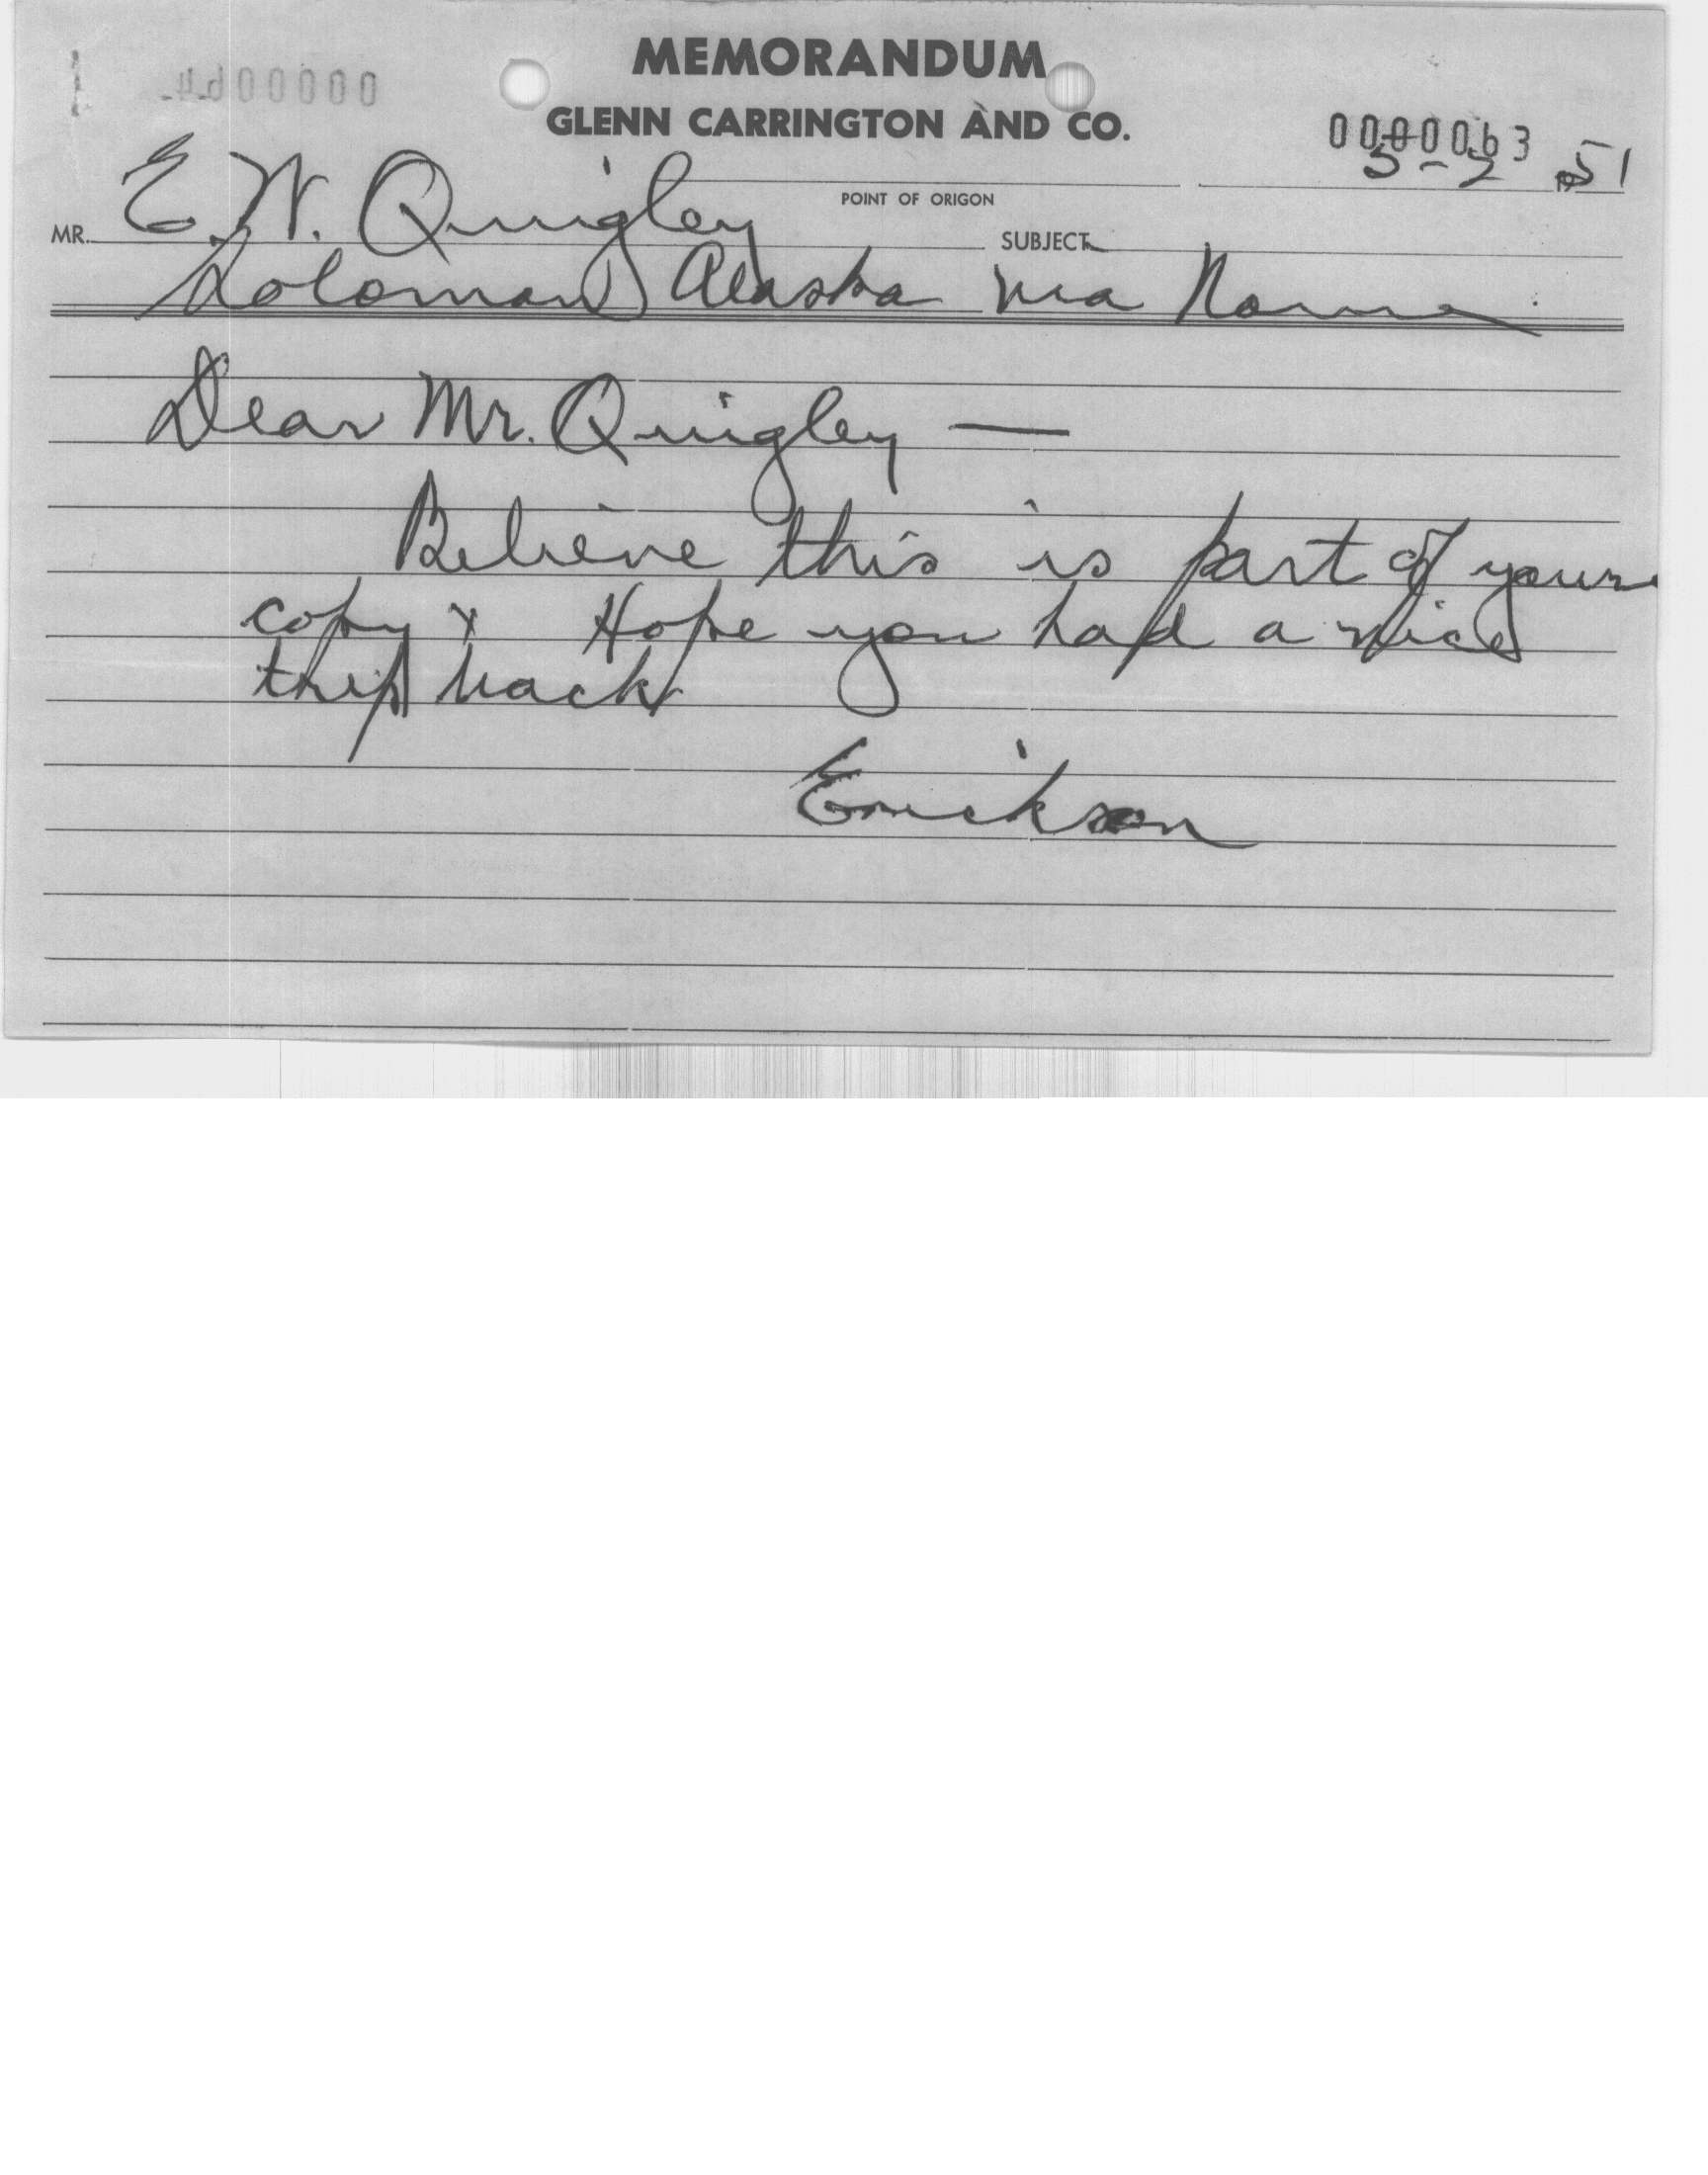 MEMORANDUM
GLENN CARRINGTON AND CO.
0000063
5-2 1951
POINT OF ORIGON
MR. E. W. Quigley
SUBJECT
Soloman Alaska via Nome
Dear Mr. Quigley —
Believe this is part of your
copy x Hope you had a nice
trip back
Erickson